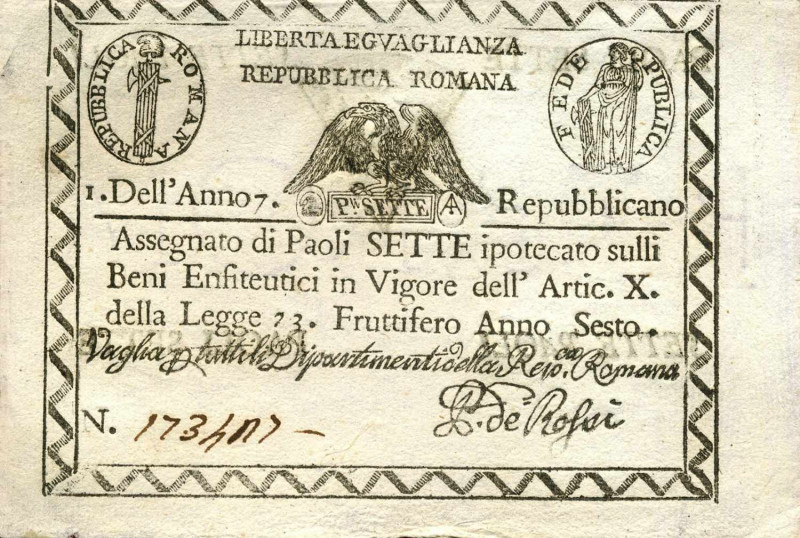 LIBERTA EGVAGLIANZA
REPUBBLICA ROMANA
REPUBBLICA ROMANA
FEDE PUBLICA
1. Dell'Anno 7.
Pli SETTE
Repubblicano
Assegnato di Paoli SETTE ipotecato sulli
Beni Enfiteutici in Vigore dell' Artic. X.
della Legge 23. Fruttifero Anno Sesto.
Vaglia p tutti li Dipartimenti della Rep.ca Romana
N.
de Rossi